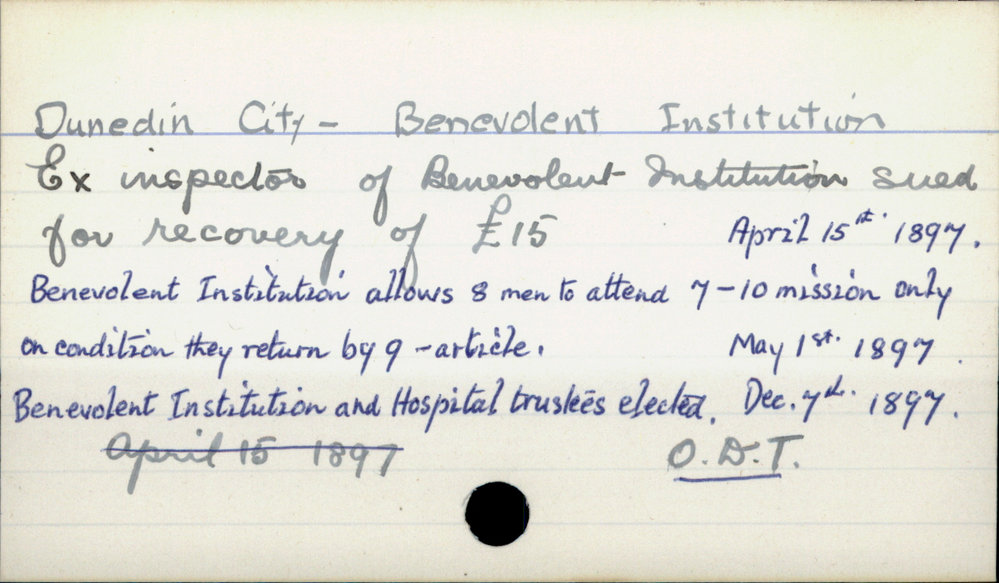 Dunedin City - Benevolent Institution
Ex inspector of Benevolent Institution sued
for recovery of £15 April 15st. 1897.
Benevolent Institution allows 8 men to attend 7-10 mission only
on condition they return by 9 - article. May 1st. 1897.
Benevolent Institution and Hospital trustees elected. Dec. 7th. 1897.
April 15 1897 O.D.T.